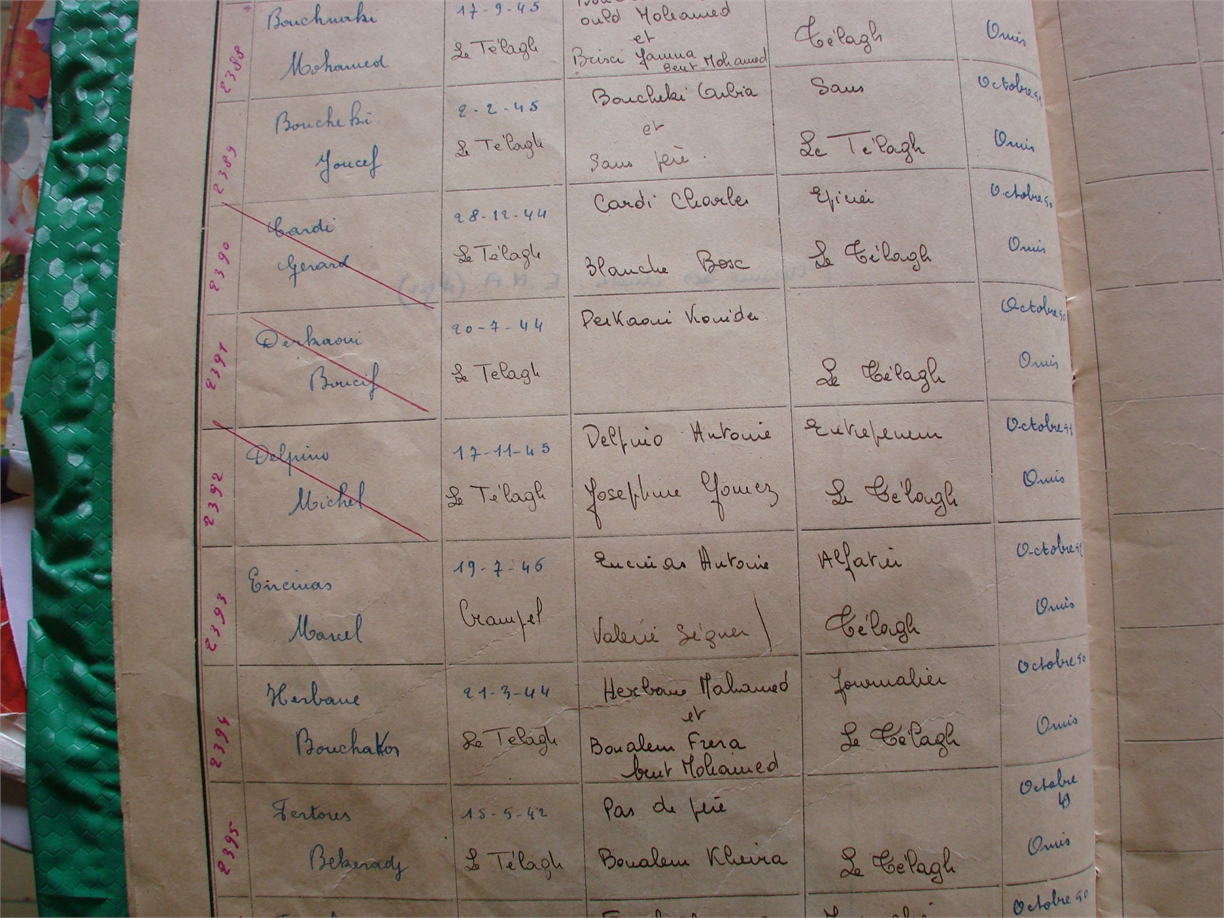 2388
Bouchiwki
Mohamed
17-9-45
Le Télagh
ould Mohamed
et
Brixi Yamna
bent Mohamed
Télagh
Omis
2389
Boucheki
Youcef
2-2-45
Le Télagh
Boucheki Arbia
et
Sans père.
Sans
Le Télagh
Octobre 51
Omis
2390
Cardi
Gerard
28-12-44
Le Télagh
Cardi Charles
Blanche Bosc
Epicier
Le Télagh
Octobre 50
Omis
2391
Derkaoui
Boucif
20-7-44
Le Telagh
Derkaoui Kouider
Le Télagh
Octobre 50
Omis
2392
Delpino
Michel
17-11-45
Le Télagh
Delpino Antoine
Josephine Gomez
Entrepreneur
Le Télagh
Octobre
Omis
2393
Encinas
Marcel
19-7-46
Crampel
Encinas Antoine
Valerie Séguer
Alfatier
Télagh
Octobre
Omis
2394
Herbane
Bouchakor
21-3-44
Le Telagh
Herbane Mahamed
et
Boualem Frera
bent Mohamed
Journalier
Le Télagh
Octobre 50
Omis
2395
Fertoues
Bekeradj
15-5-42
Le Télagh
Pas de père
Boualem Kheira
Le Télagh
Octobre
49
Omis
Octobre 50